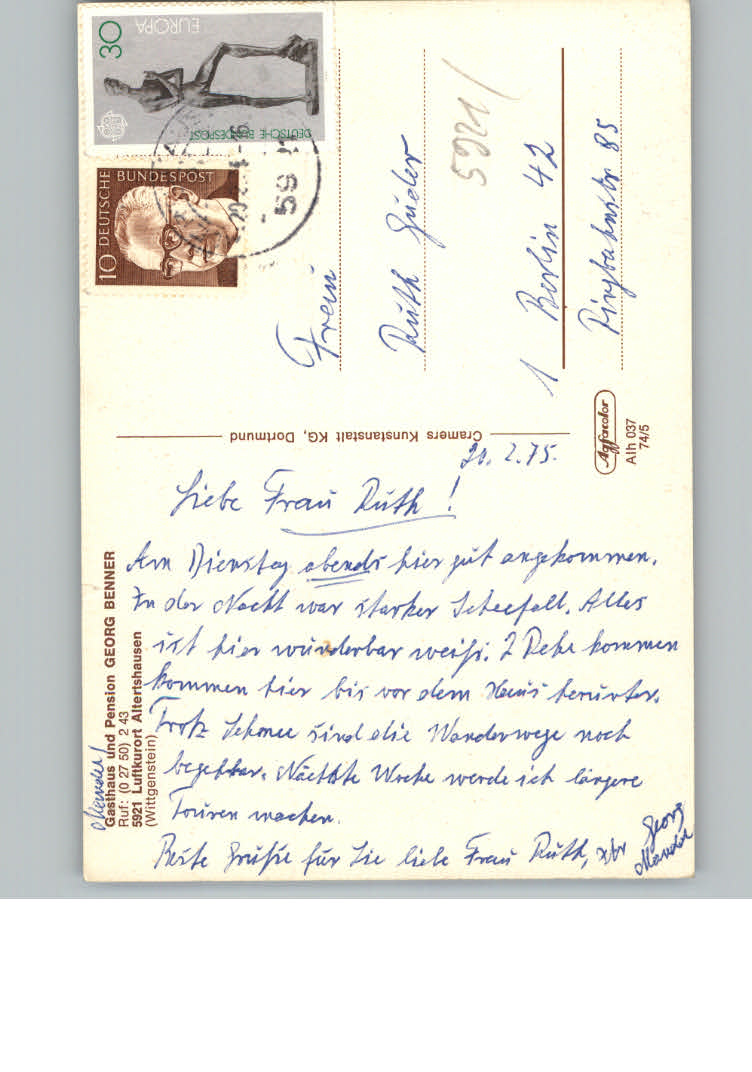 30
EUROPA
DEUTSCHE BUNDESPOST
10 DEUTSCHE BUNDESPOST
59
5921/
Frau
Ruth Guder
1 Berlin 42
Ringbahnstr 85
Cramers Kunstanstalt KG, Dortmund
Agfacolor
Alh 037
74/5
Mander/
Gasthaus und Pension GEORG BENNER
Ruf: (0 27 50) 2 43
5921 Luftkurort Alertshausen
(Wittgenstein)
20. 2. 75.
Liebe Frau Ruth!
Am Dienstag abends hier gut angekommen.
In der Nacht war starker Scheefall. Alles
ist hier wunderbar weiß. 2 Rehe kommen
kommen hier bis vor dem Haus herunter.
Trotz Schnee sind die Wanderwege noch
begehbar. Nächste Woche werde ich längere
Touren machen.
Beste Grüße für Sie liebe Frau Ruth, Ihr Georg
Mander